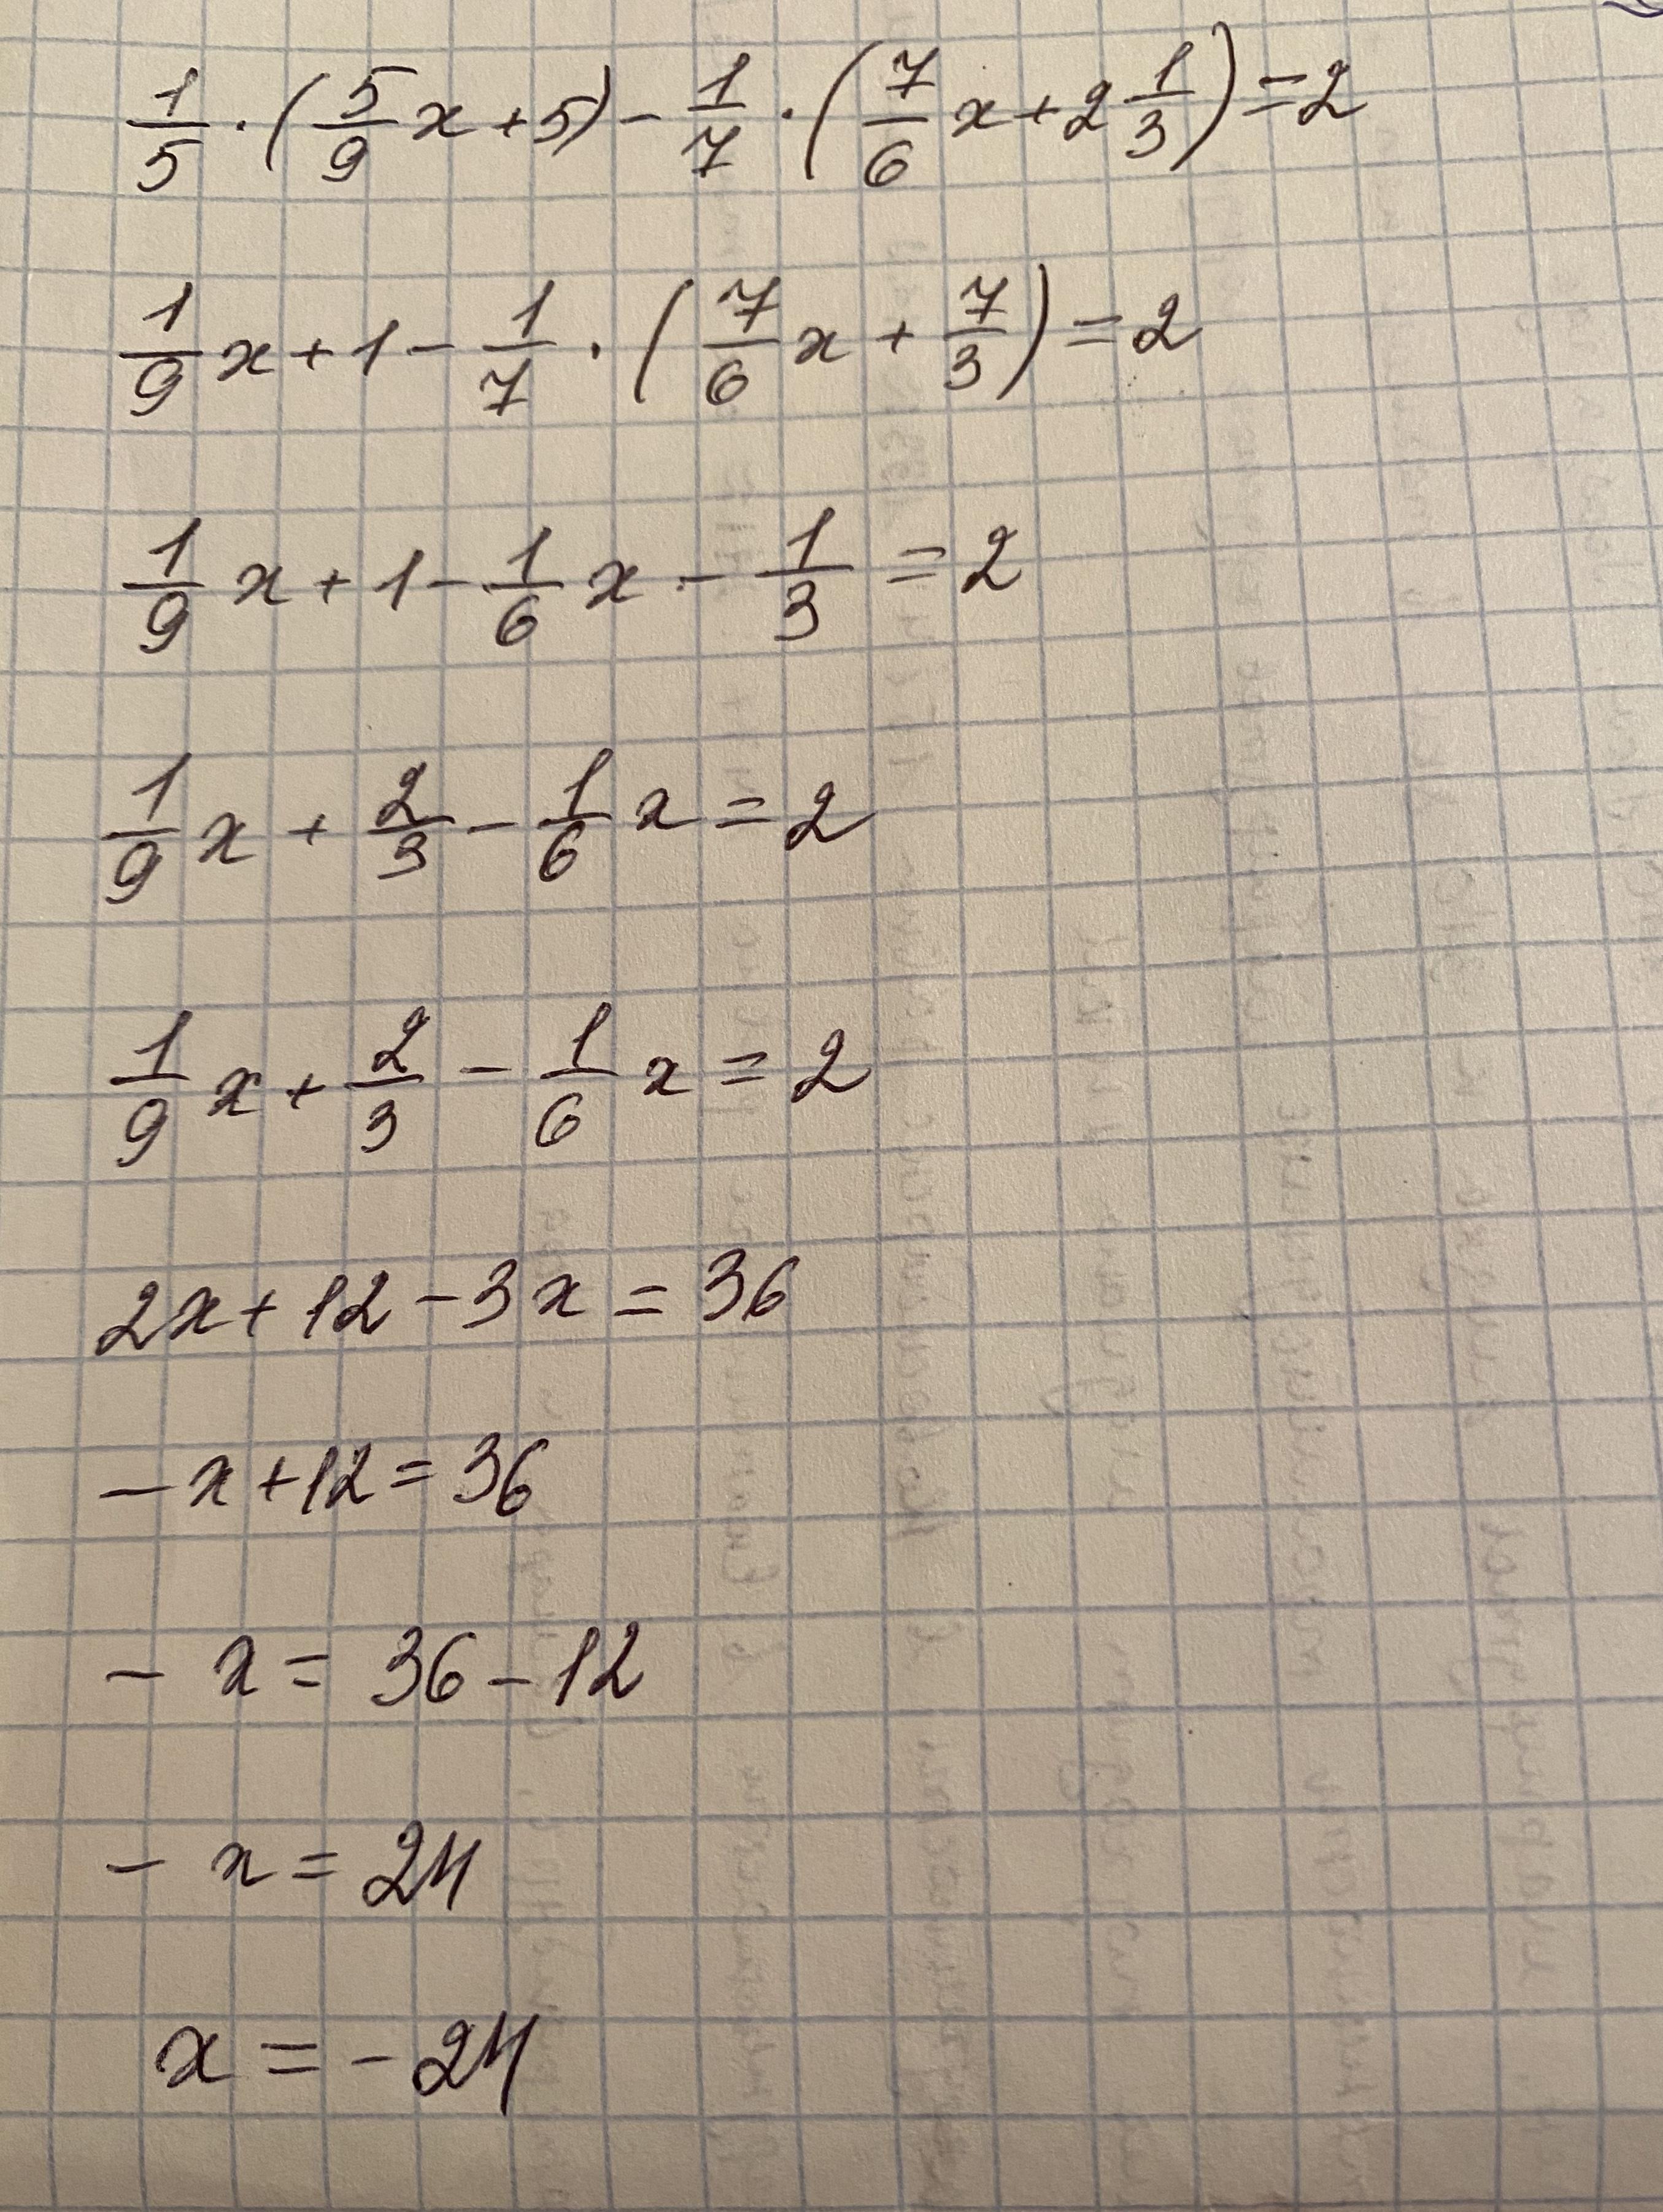 1/5 · (5/9 x + 5) - 1/7 · (7/6 x + 2 1/3) = 2
1/9 x + 1 - 1/7 · (7/6 x + 7/3) = 2
1/9 x + 1 - 1/6 x - 1/3 = 2
1/9 x + 2/3 - 1/6 x = 2
1/9 x + 2/3 - 1/6 x = 2
2x + 12 - 3x = 36
- x + 12 = 36
- x = 36 - 12
- x = 24
x = - 24